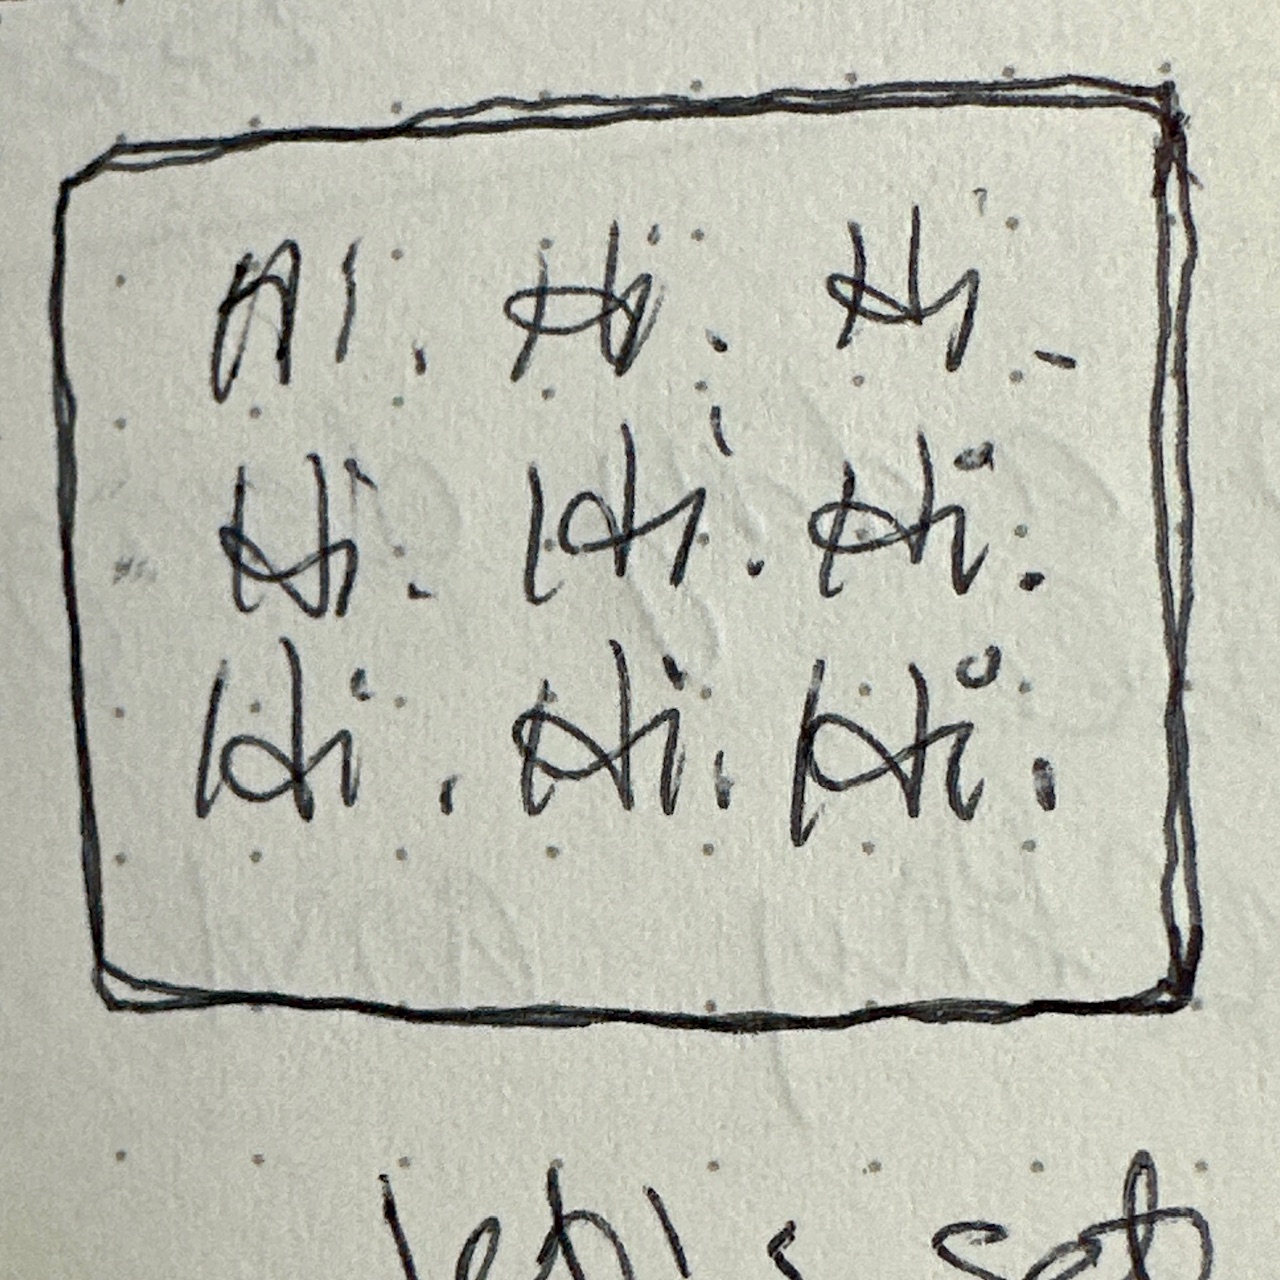 Hi. Hi. Hi.
Hi. Hi. Hi.
Hi. Hi. Hi.
let's